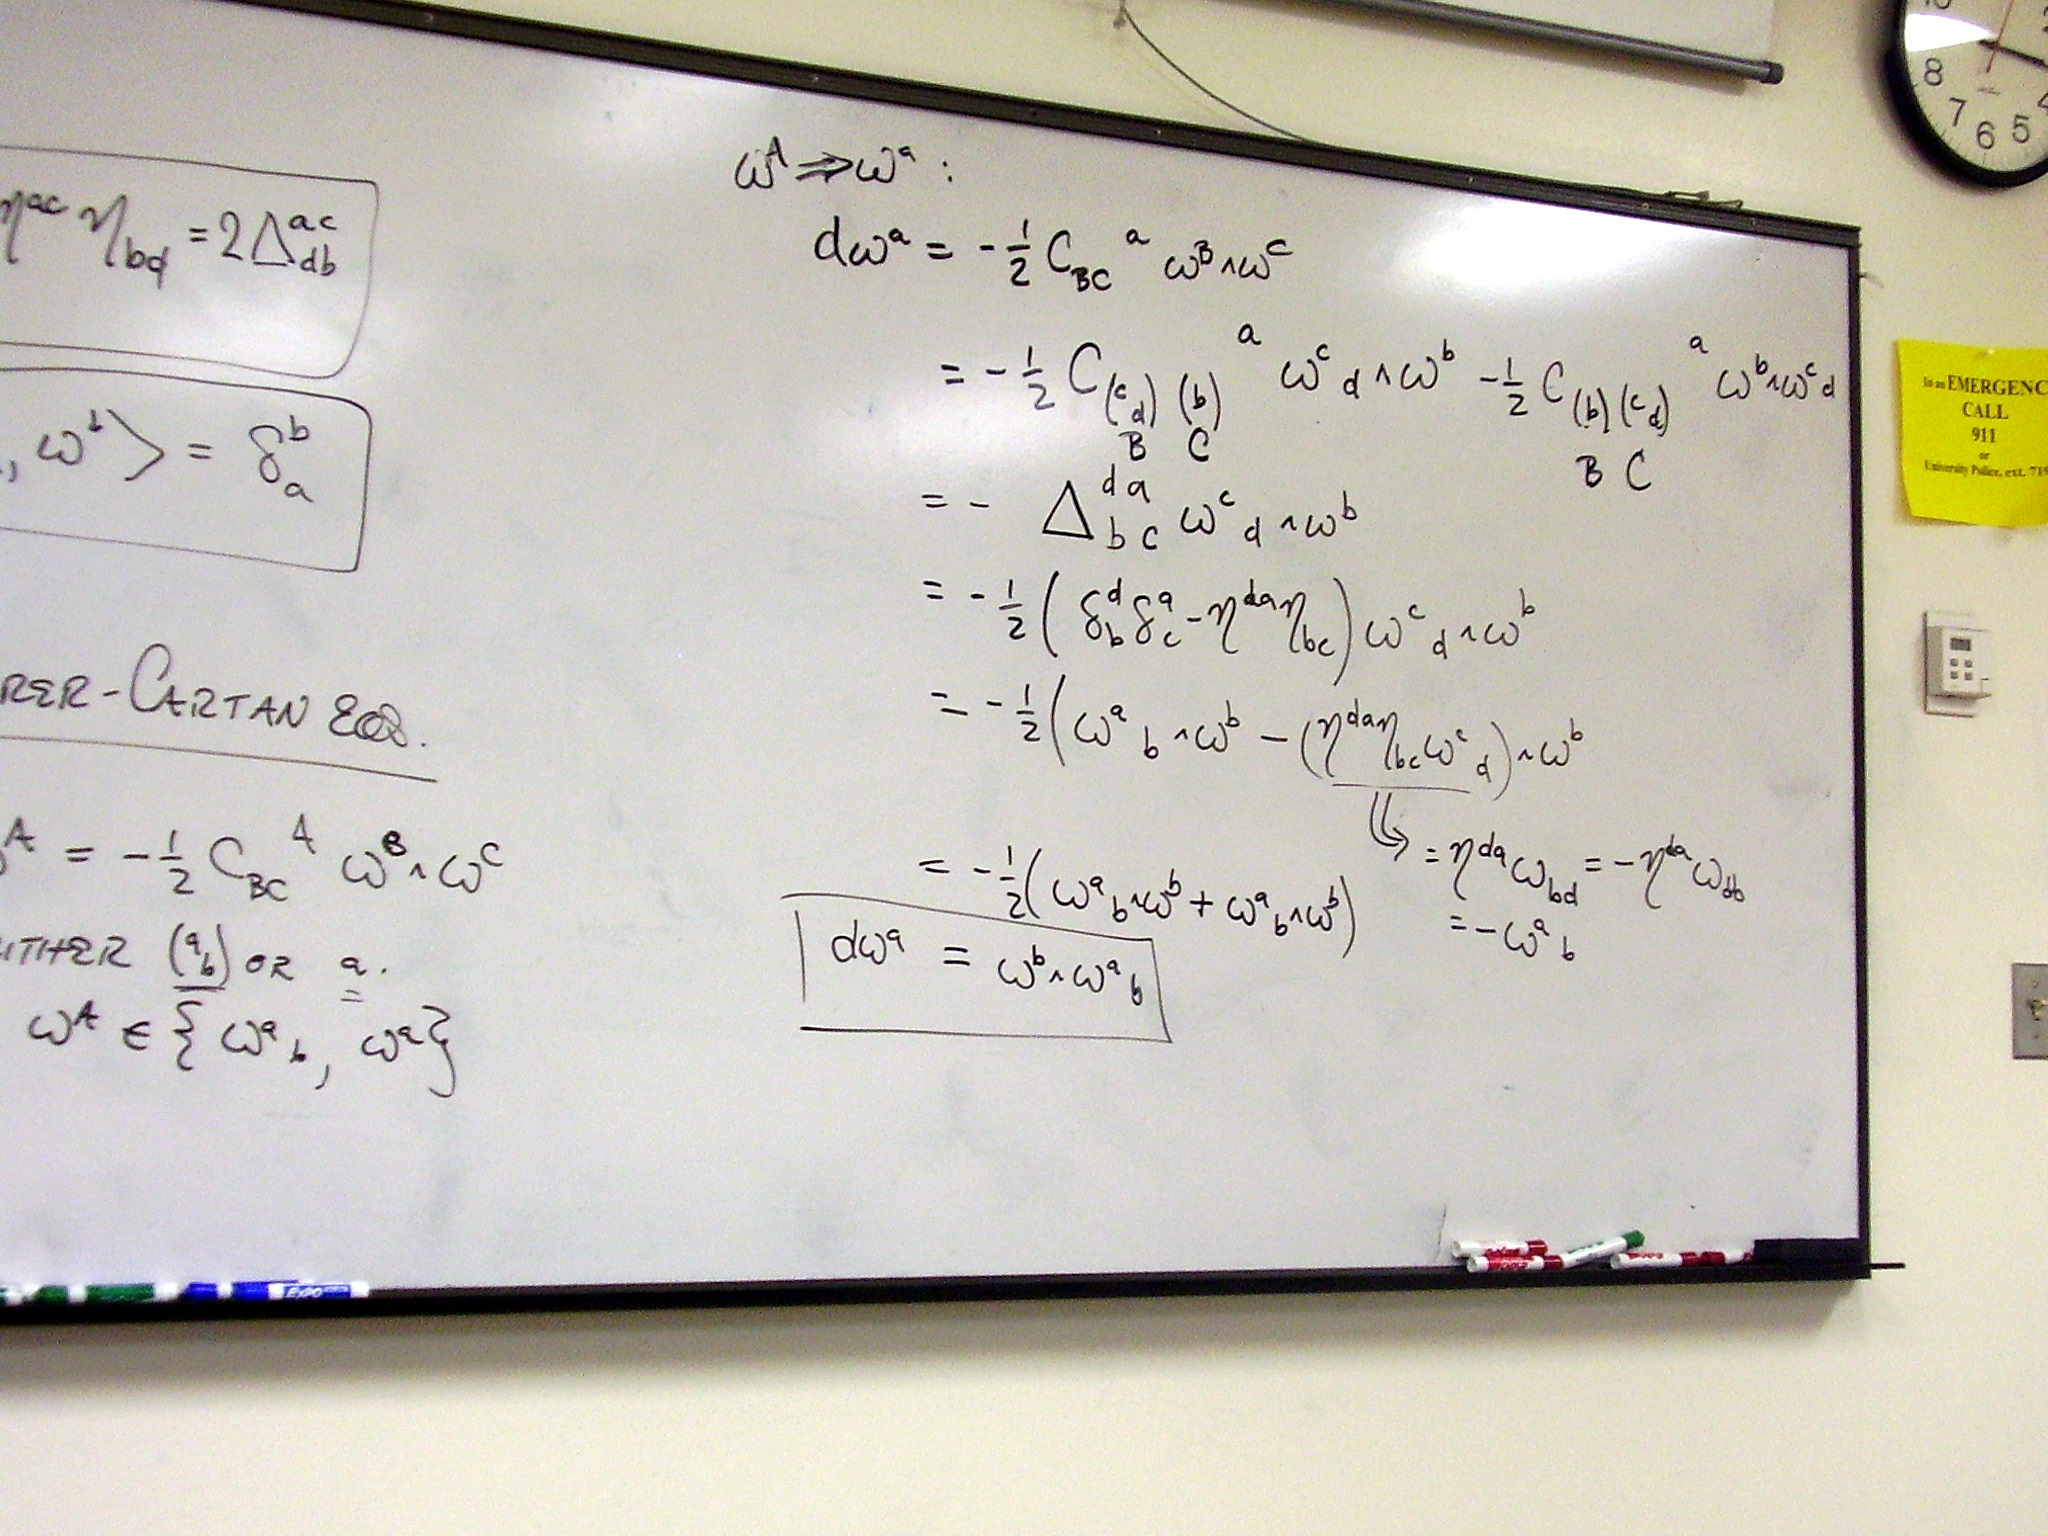 η^{ac} η_{bd} = 2Δ^{ac}_{db}
, ω^b⟩ = δ^b_a
RER-CARTAN EQS.
ω^A = -1/2 C_{BC}^A ω^B∧ω^C
ITHER (^a_b) OR a.
ω^A ∈ {ω^a_b, ω^a}
ω^A ⇒ ω^a :
dω^a = -1/2 C_{BC}^a ω^B∧ω^C
= -1/2 C_{(^c_d)(b)}^a ω^c_d∧ω^b -1/2 C_{(b)(^c_d)}^a ω^b∧ω^c_d
B C
B C
= - Δ^{da}_{bc} ω^c_d∧ω^b
= -1/2 (δ^d_b δ^a_c - η^{da}η_{bc}) ω^c_d∧ω^b
= -1/2 (ω^a_b∧ω^b - (η^{da}η_{bc}ω^c_d)∧ω^b
⇒ = η^{da}ω_{bd} = -η^{da}ω_{db}
= -ω^a_b
= -1/2(ω^a_b∧ω^b + ω^a_b∧ω^b)
dω^a = ω^b∧ω^a_b
10
8
7
6
5
4
In an EMERGENC
CALL
911
or
University Police, ext. 719
EXPO